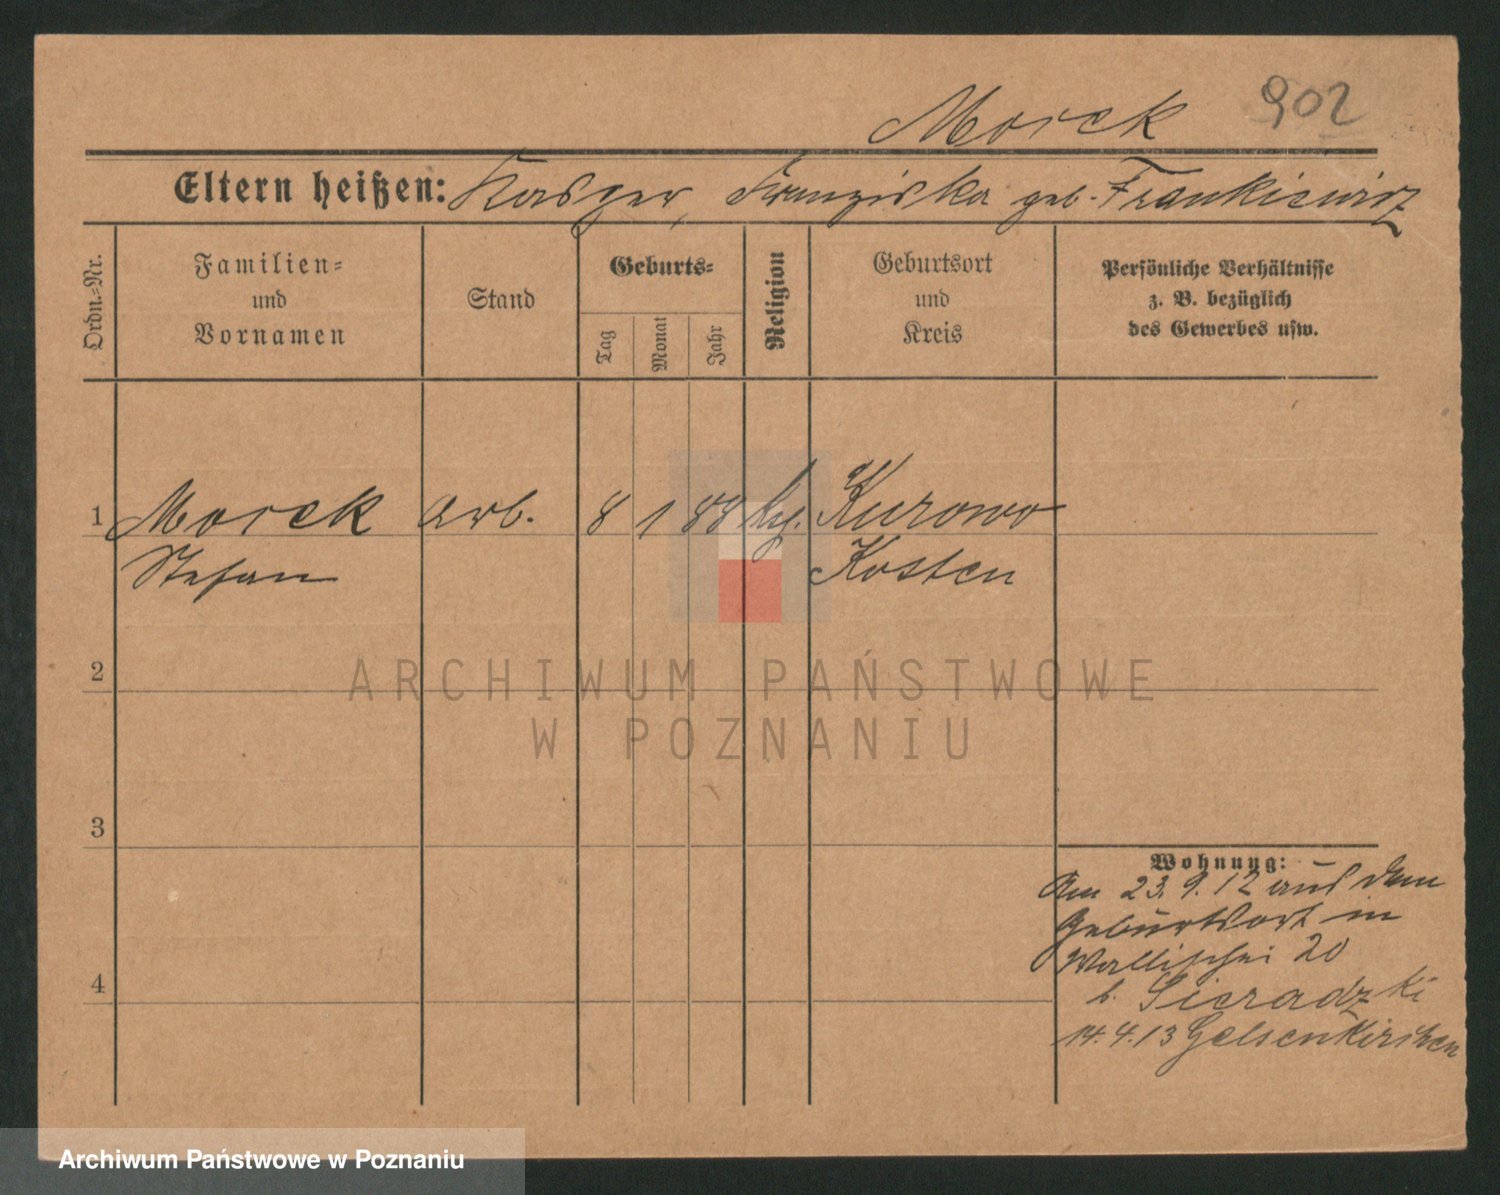 Morck 902
Eltern heißen: Kasper, Franziska geb. Frankiewicz
Ordn.-Nr.
Familien-
und
Vornamen
Stand
Geburts-
Tag
Monat
Jahr
Religion
Geburtsort
und
Kreis
Persönliche Verhältnisse
z. B. bezüglich
des Gewerbes usw.
1 Morck Arb. 8 1 88 Kurowo
Stefan Kosten
2
3
4
Wohnung:
Am 23.9.12 aus dem
Geburtsort in
Wallischei 20
b. Sieradzki
14.4.13 Gelsenkirchen
ARCHIWUM PAŃSTWOWE
W POZNANIU
Archiwum Państwowe w Poznaniu